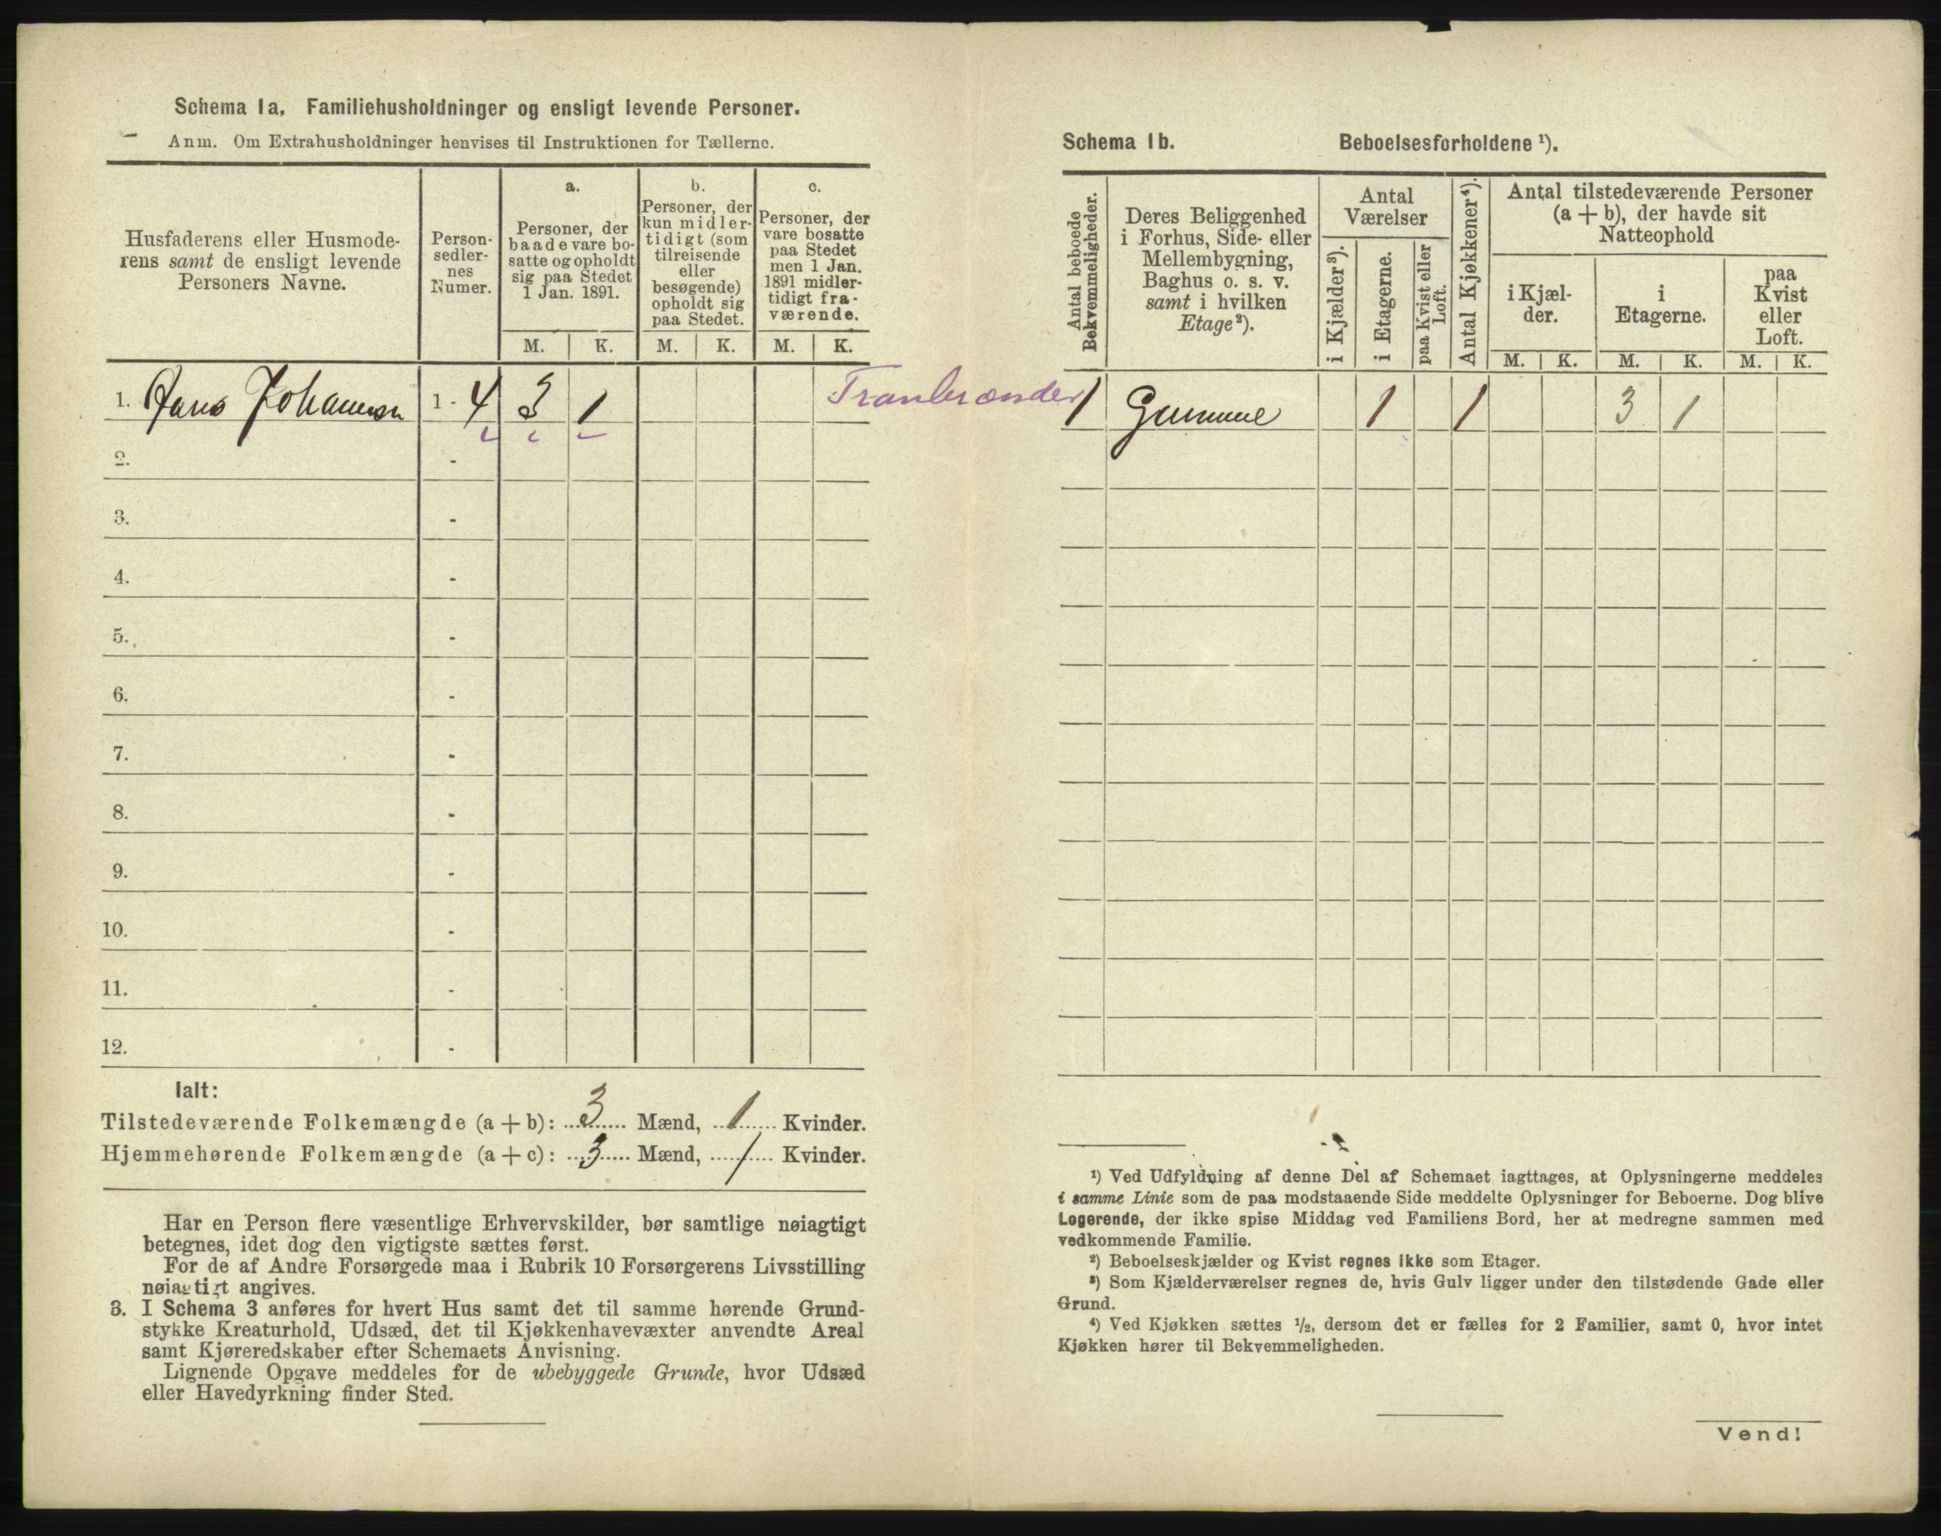 Schema 1a. Familiehusholdninger og ensligt levende Personer.
Anm. Om Extrahusholdninger henvises til Instruktionen for Tællerne.
Husfaderens eller Husmode-
rens samt de ensligt levende
Personers Navne.
Person-
sedler-
nes
Numer.
a.
Personer, der
baade vare bo-
satte og opholdt
sig paa Stedet
1 Jan. 1891.
b.
Personer, der
kun midler-
tidigt (som
tilreisende
eller
besøgende)
opholdt sig
paa Stedet.
c.
Personer, der
vare bosatte
paa Stedet
men 1 Jan.
1891 midler-
tidigt fra-
værende.
M. K. M. K. M. K.
1. Hans Johannesen 1 - 4 3 1 Tranbrænder
2. -
3. -
4. -
5. -
6. -
7. -
8. -
9. -
10. -
11. -
12. -
Ialt:
Tilstedeværende Folkemængde (a + b): 3 Mænd, 1 Kvinder.
Hjemmehørende Folkemængde (a + c): 3 Mænd, 1 Kvinder.
Har en Person flere væsentlige Erhvervskilder, bør samtlige nøiagtigt
betegnes, idet dog den vigtigste sættes først.
For de af Andre Forsørgede maa i Rubrik 10 Forsørgerens Livsstilling
nøiagtigt angives.
3. I Schema 3 anføres for hvert Hus samt det til samme hørende Grund-
stykke Kreaturhold, Udsæd, det til Kjøkkenhavevæxter anvendte Areal
samt Kjøreredskaber efter Schemaets Anvisning.
Lignende Opgave meddeles for de ubebyggede Grunde, hvor Udsæd
eller Havedyrkning finder Sted.
Schema 1b. Beboelsesforholdene ¹).
Antal beboede
Bekvemmeligheder.
Deres Beliggenhed
i Forhus, Side- eller
Mellembygning,
Baghus o. s. v.
samt i hvilken
Etage²).
Antal
Værelser
i Kjælder³).
i Etagerne.
paa Kvist eller
Loft.
Antal Kjøkkener⁴).
Antal tilstedeværende Personer
(a + b), der havde sit
Natteophold
i Kjæl-
der.
i
Etagerne.
paa
Kvist
eller
Loft.
M. K. M. K. M. K.
1 Gamme 1 1 3 1
¹) Ved Udfyldning af denne Del af Schemaet iagttages, at Oplysningerne meddeles
i samme Linie som de paa modstaaende Side meddelte Oplysninger for Beboerne. Dog blive
Logerende, der ikke spise Middag ved Familiens Bord, her at medregne sammen med
vedkommende Familie.
²) Beboelseskjælder og Kvist regnes ikke som Etager.
³) Som Kjælderværelser regnes de, hvis Gulv ligger under den tilstødende Gade eller
Grund.
⁴) Ved Kjøkken sættes ½, dersom det er fælles for 2 Familier, samt 0, hvor intet
Kjøkken hører til Bekvemmeligheden.
Vend!